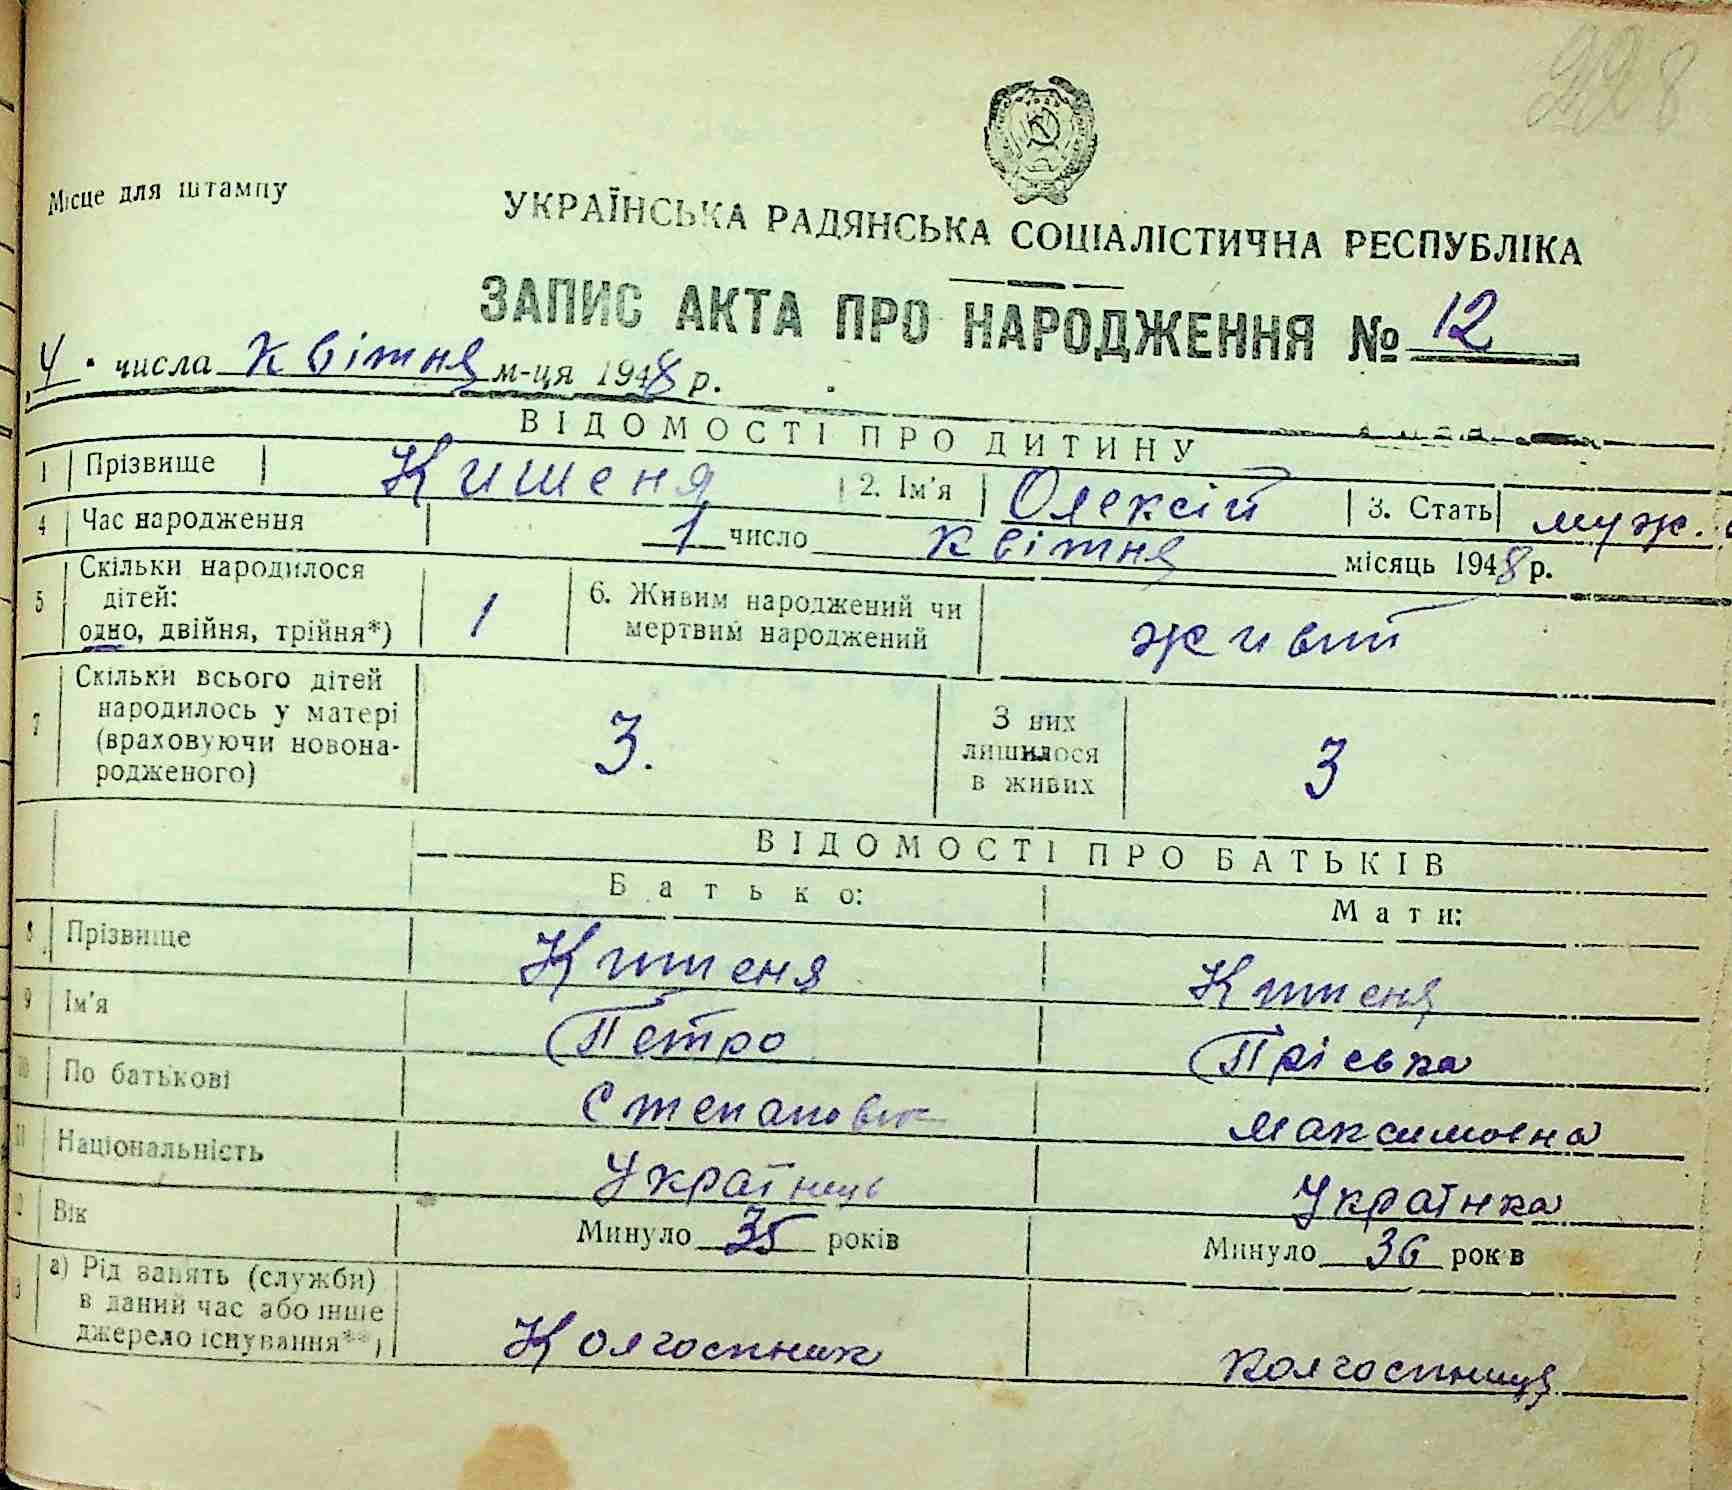 228
Місце для штампу
УКРАЇНСЬКА РАДЯНСЬКА СОЦІАЛІСТИЧНА РЕСПУБЛІКА
ЗАПИС АКТА ПРО НАРОДЖЕННЯ № 12
4 числа квітня м-ця 1948 р.
ВІДОМОСТІ ПРО ДИТИНУ
1 Прізвище Кишеня 2. Ім'я Олексій 3. Стать муж.
4 Час народження 1 число квітня місяць 1948 р.
5 Скільки народилося дітей: одно, двійня, трійня*) 1 6. Живим народжений чи мертвим народжений живий
7 Скільки всього дітей народилось у матері (враховуючи новонародженого) 3. З них лишилося в живих 3
ВІДОМОСТІ ПРО БАТЬКІВ
Батько: Мати:
8 Прізвище Кишеня Кишеня
9 Ім'я Петро Пріська
10 По батькові Степанович Максимовна
11 Національність Українець Українка
12 Вік Минуло 35 років Минуло 36 років
а) Рід занять (служби) в даний час або інше джерело існування**) Колгоспник колгоспниця